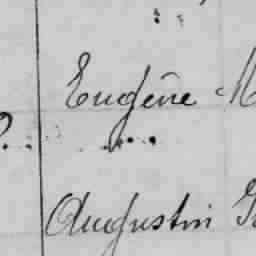 Eugène
Augustin